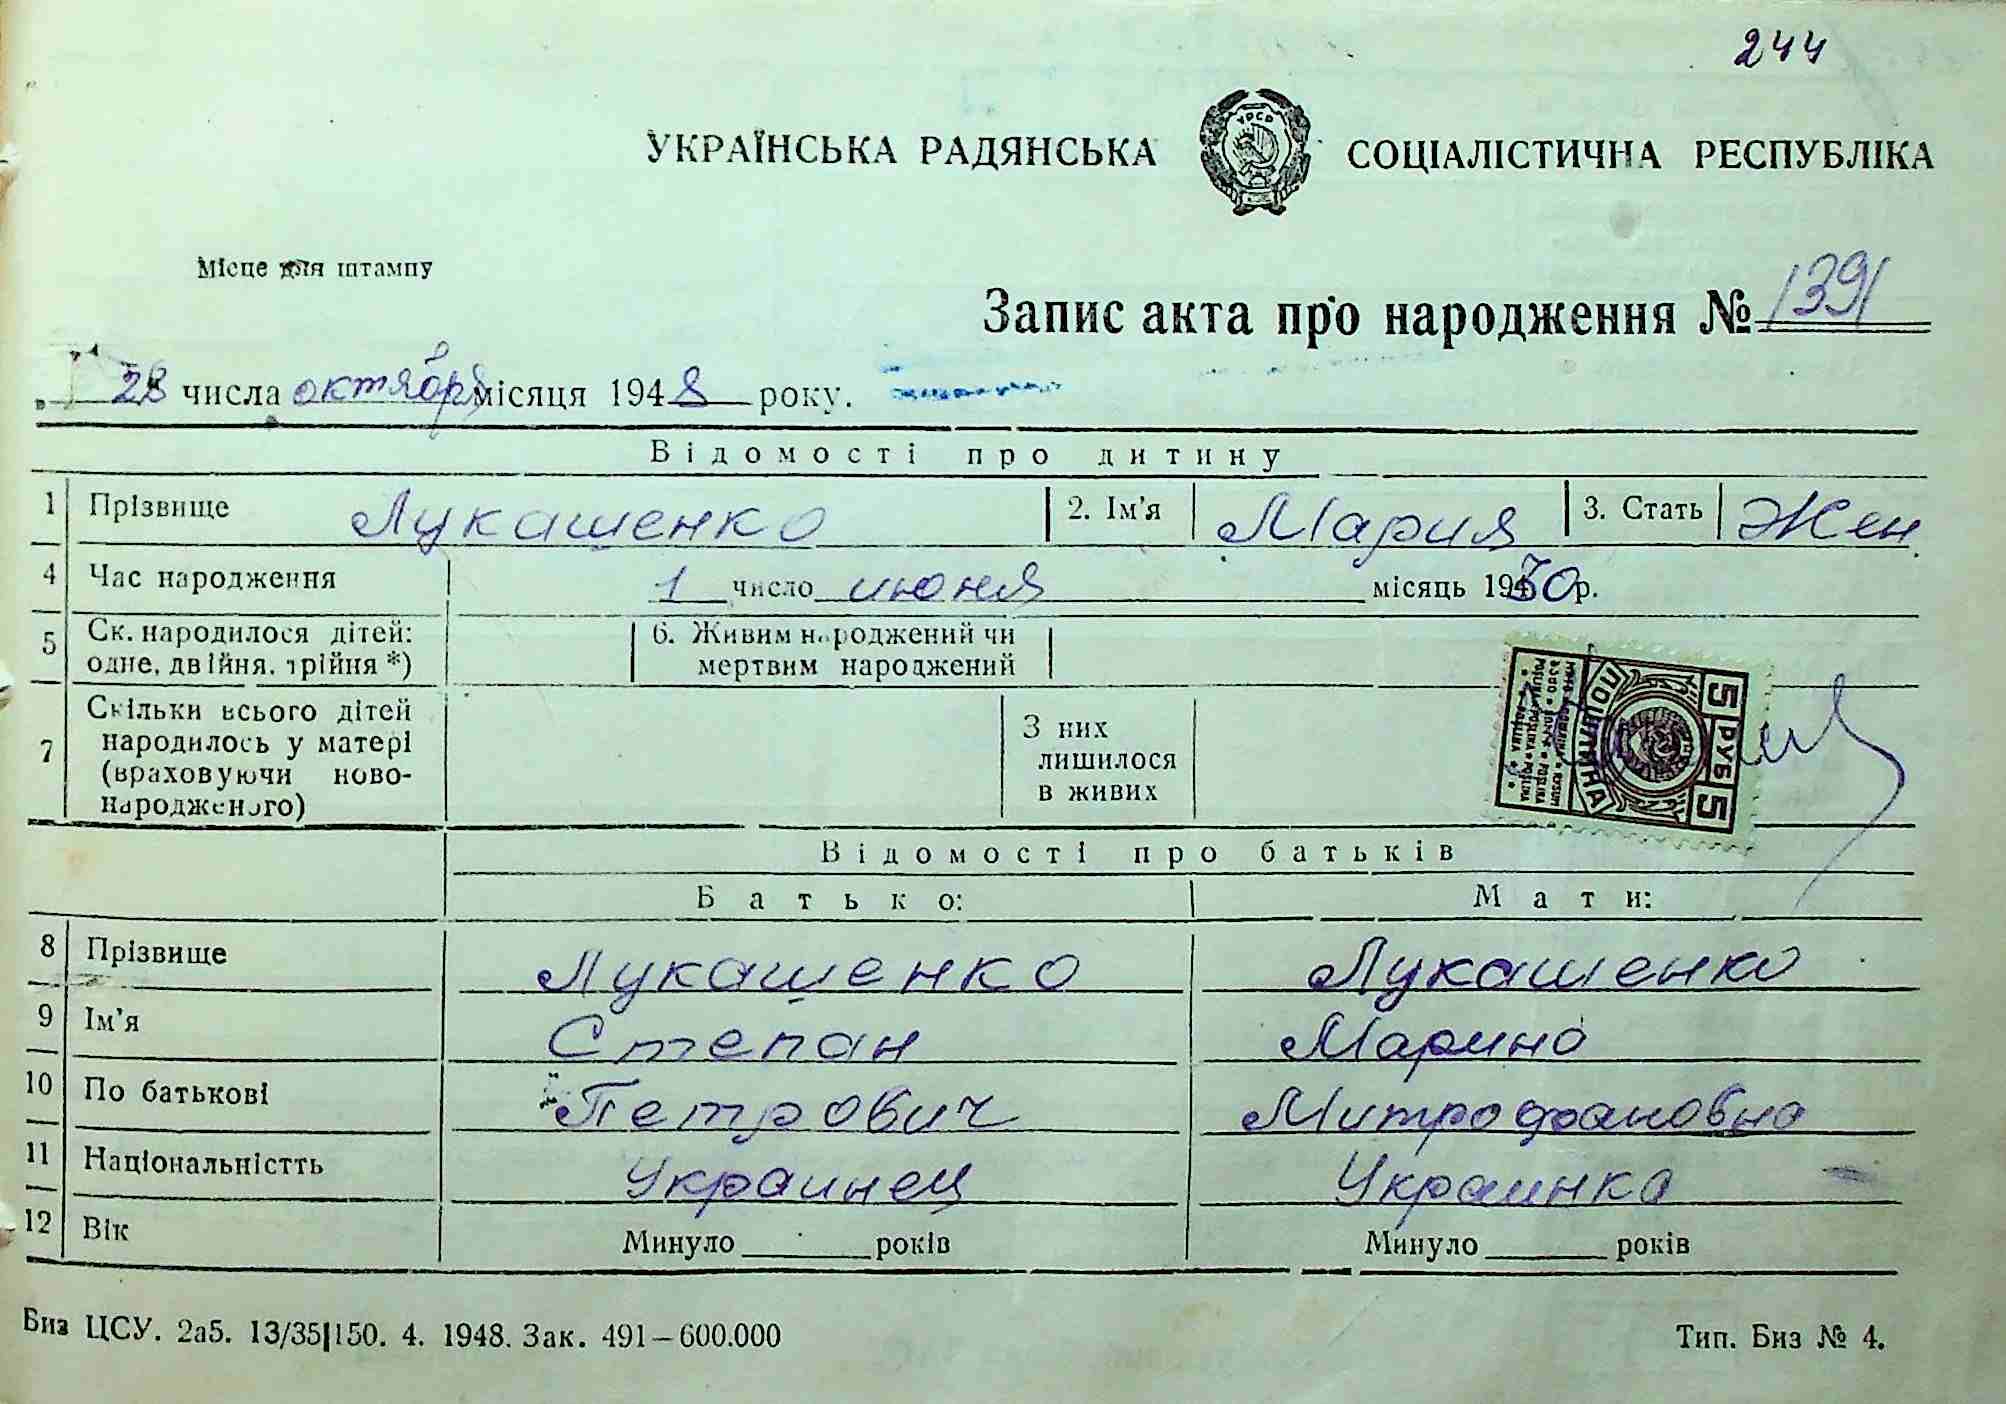 244
УКРАЇНСЬКА РАДЯНСЬКА СОЦІАЛІСТИЧНА РЕСПУБЛІКА
УРСР
Місце для штампу
Запис акта про народження № 1391
28 числа октября місяця 1948 року.
Відомості про дитину
1 Прізвище Лукашенко 2. Ім'я Мария 3. Стать Жен
4 Час народження 1 число июня місяць 1930 р.
5 Ск. народилося дітей: одне, двійня, трійня *) 6. Живим народжений чи мертвим народжений
7 Скільки всього дітей народилось у матері (враховуючи новонародженого) З них лишилося в живих
5 РУБ 5
ПОШЛИНА
Відомості про батьків
Батько: Мати:
8 Прізвище Лукашенко Лукашенко
9 Ім'я Степан Марина
10 По батькові Петрович Митрофановна
11 Національністть Украинец Украинка
12 Вік Минуло років Минуло років
Биз ЦСУ. 2а5. 13/35|150. 4. 1948. Зак. 491—600.000 Тип. Биз № 4.